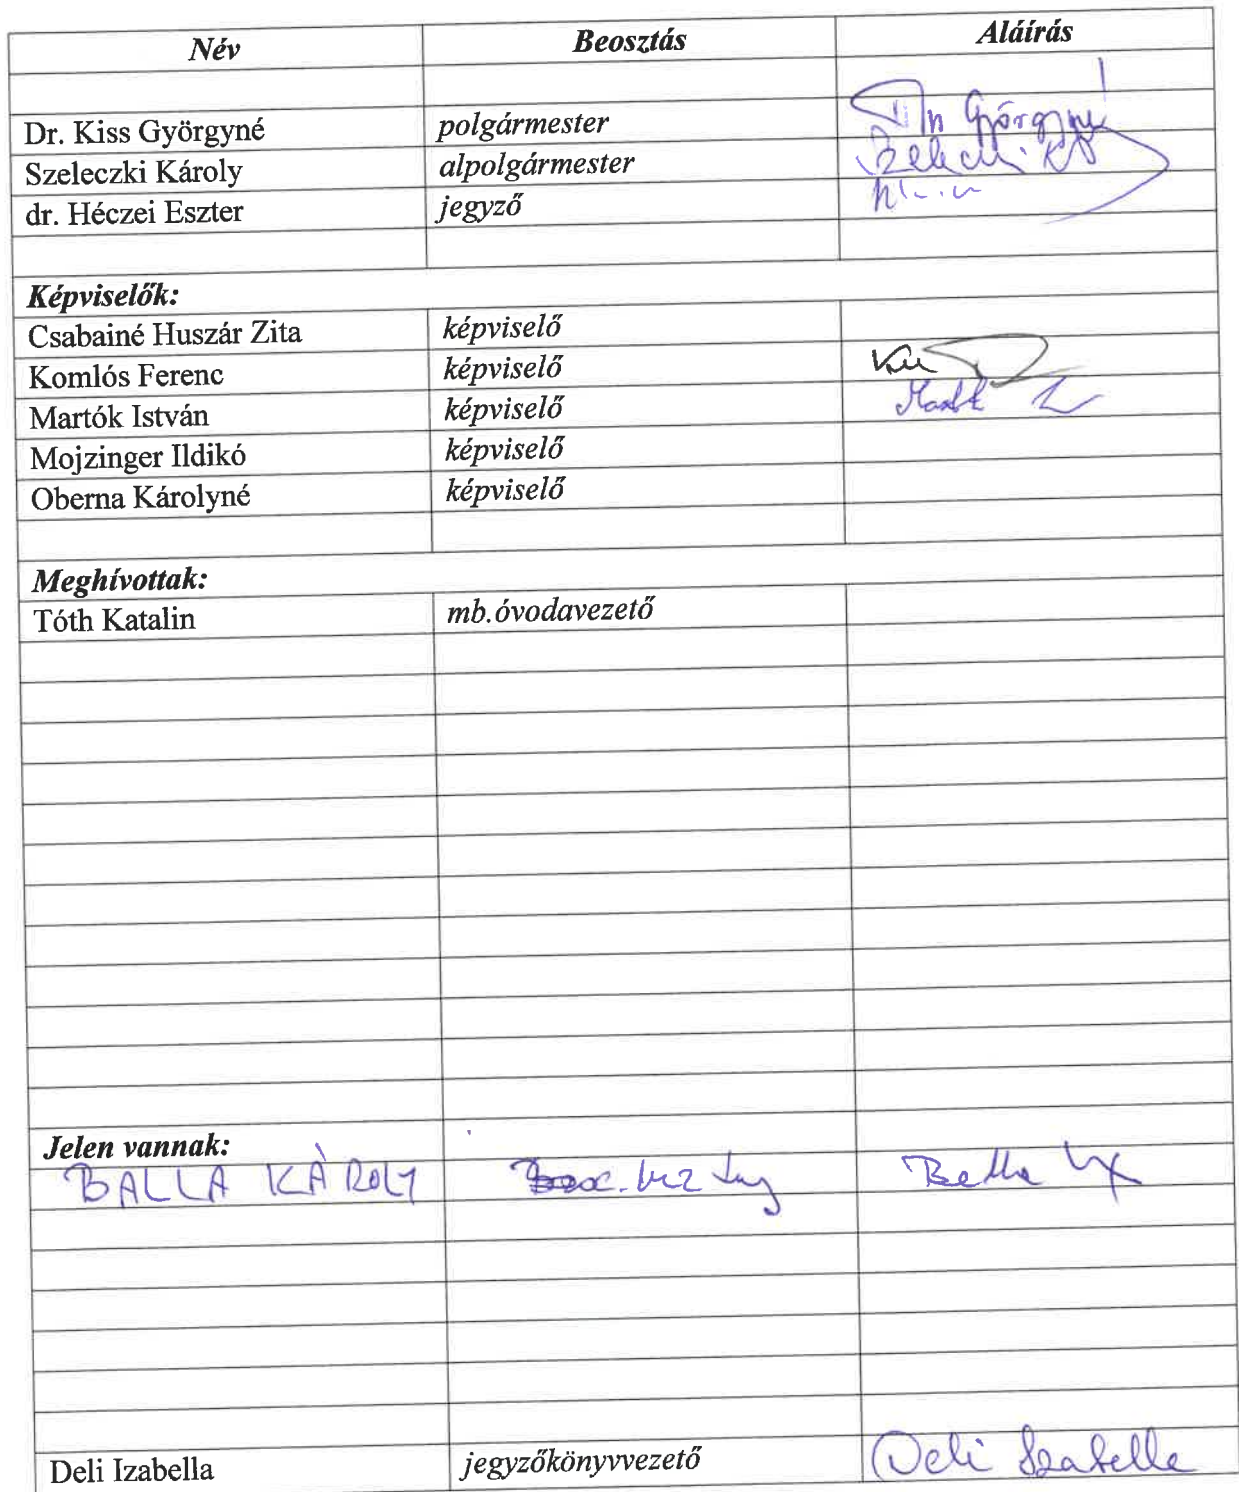 Név Beosztás Aláírás
Dr. Kiss Györgyné polgármester Györgyné
Szeleczki Károly alpolgármester
dr. Héczei Eszter jegyző
Képviselők:
Csabainé Huszár Zita képviselő
Komlós Ferenc képviselő
Martók István képviselő
Mojzinger Ildikó képviselő
Oberna Károlyné képviselő
Meghívottak:
Tóth Katalin mb.óvodavezető
Jelen vannak:
BALLA KÁROLY Balla
Deli Izabella jegyzőkönyvvezető Deli Izabella